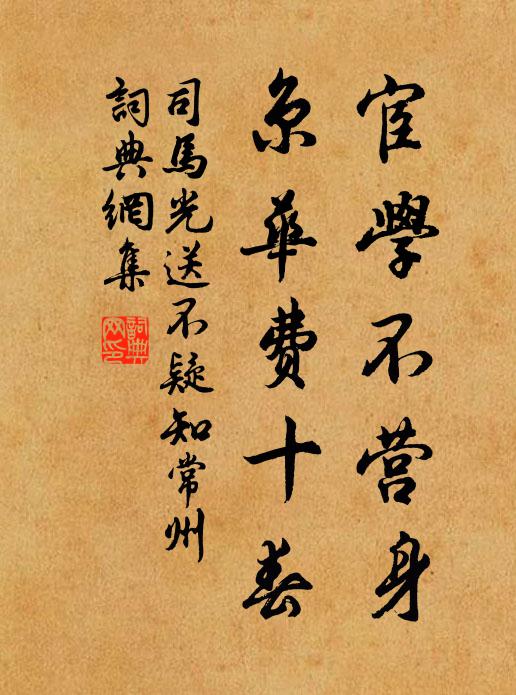 宦學不营身
京華費十春
司馬光送不疑知常州
詞典網集
詞典網印